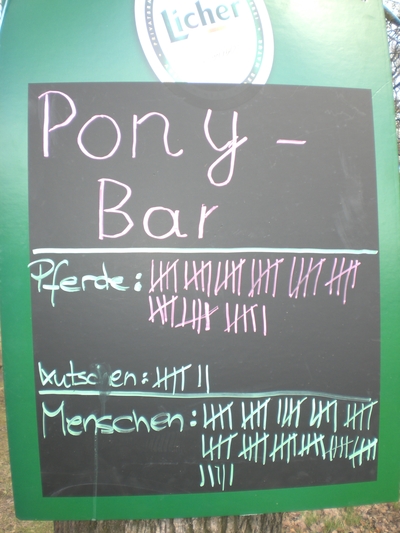 Licher
Pony -
Bar
Pferde:
Kutschen:
Menschen: